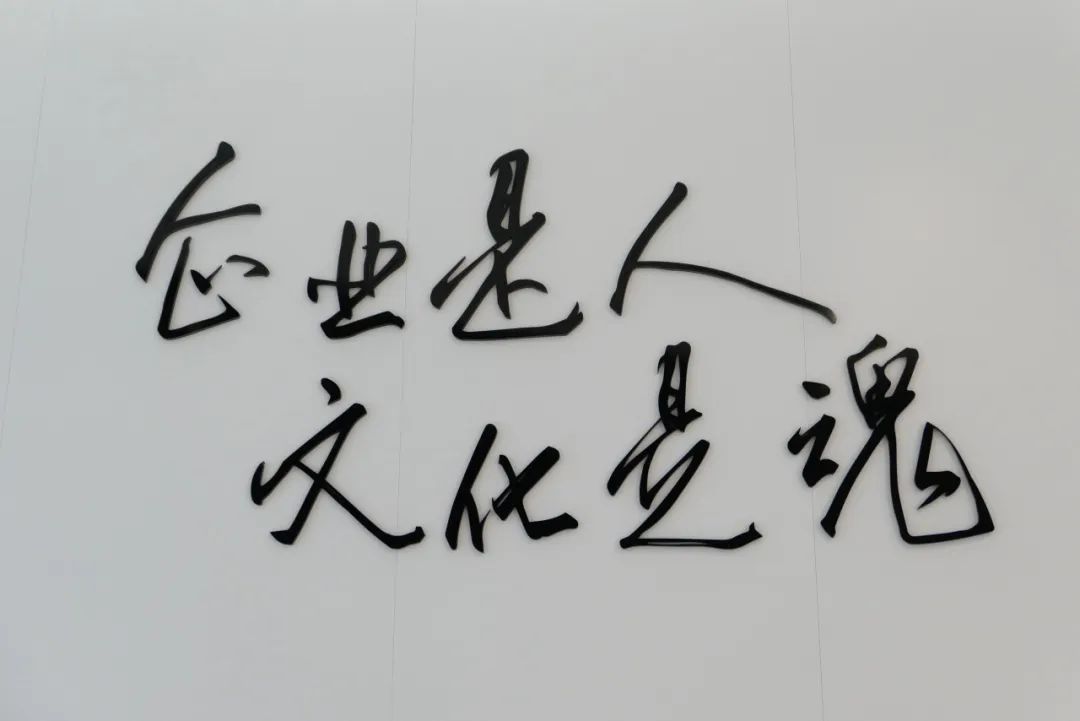 企业是人
文化是魂